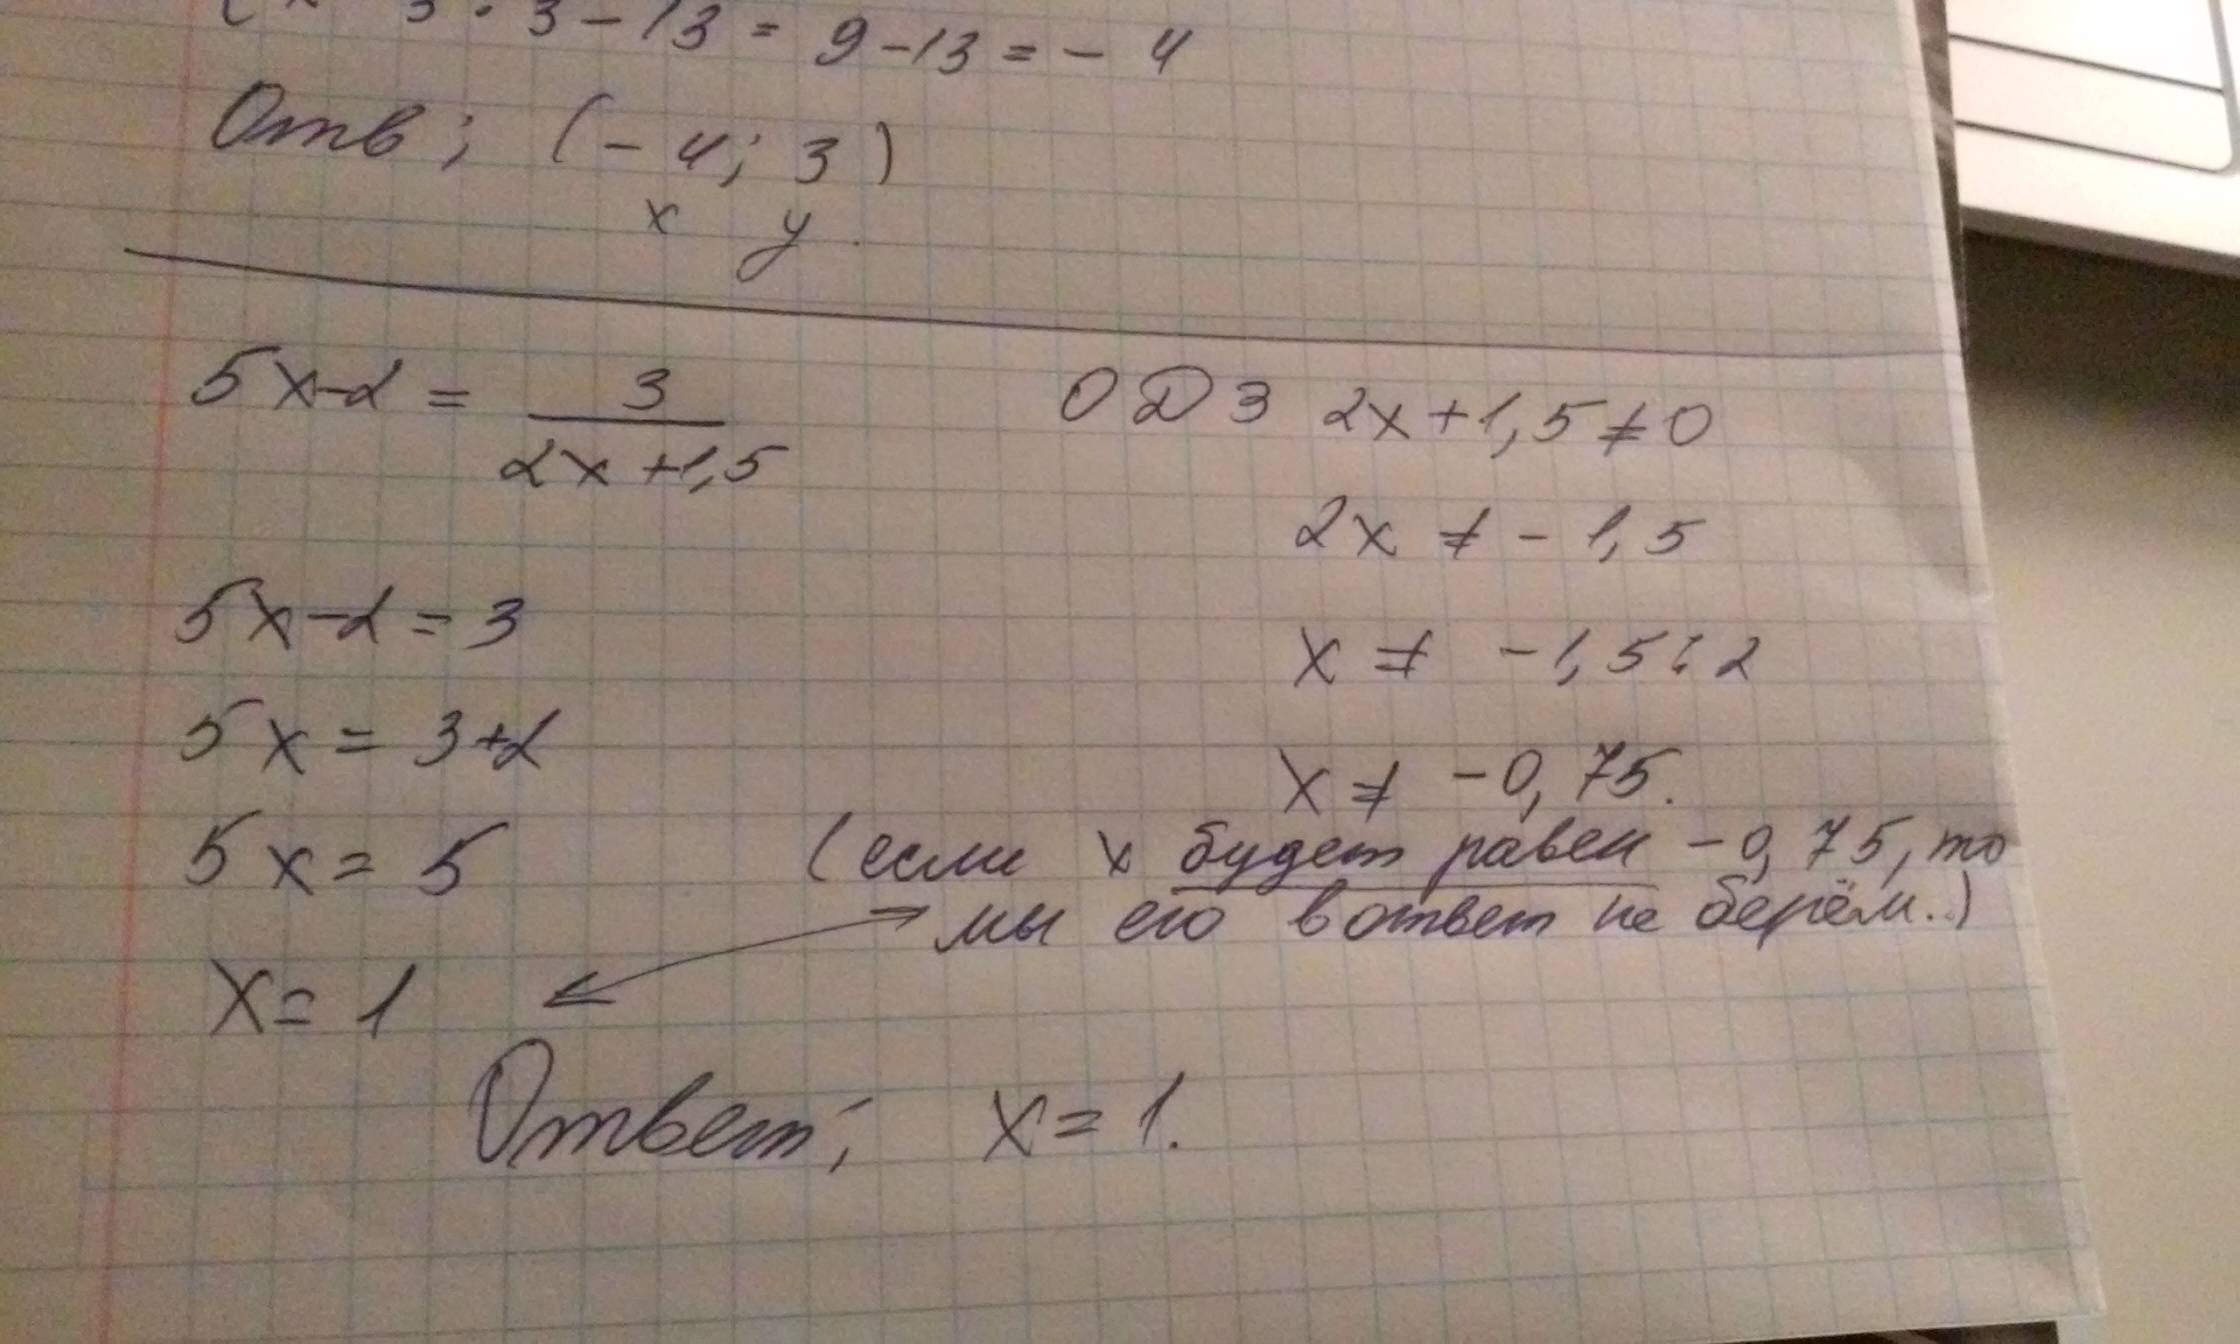 3 · 3 - 13 = 9 - 13 = - 4
Отв; (- 4; 3)
x y.
5x-2 = 3/(2x+1,5)
ОДЗ 2x+1,5≠0
2x ≠ - 1,5
x ≠ -1,5:2
x ≠ -0,75.
(если x будет равен -0,75, то
мы его в ответ не берём..)
5x-2=3
5x = 3+2
5x = 5
x = 1
Ответ; x = 1.